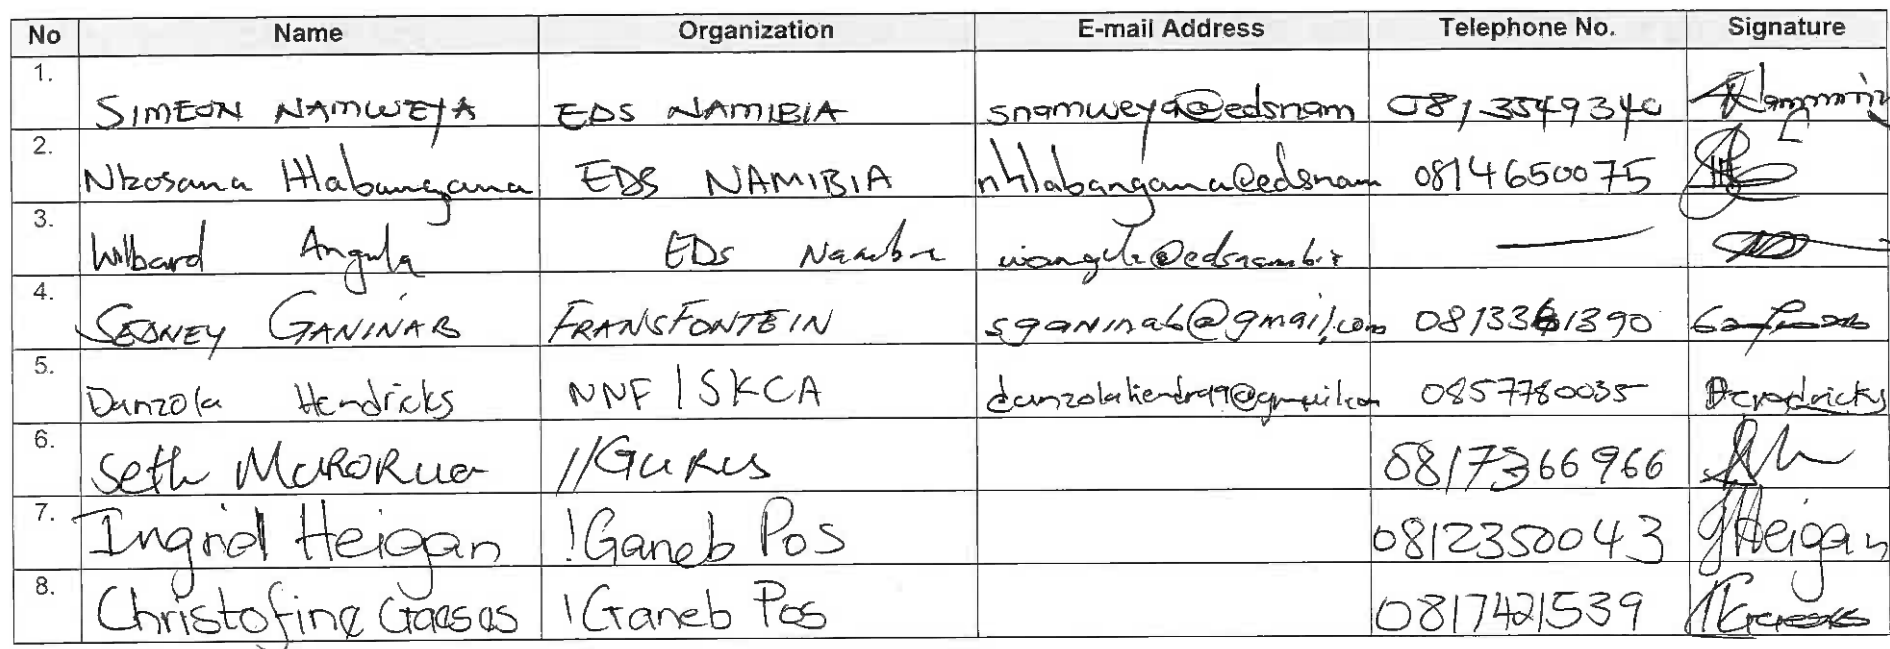 No Name Organization E-mail Address Telephone No. Signature
1. SIMEON NAMWEYA EDS NAMIBIA snamweya@edsnam 0813549340
2. Nkosana Hlabangana EDS NAMIBIA nhlabangana@edsnam 0814650075
3. Wilbard Angula EDS —
4. SEDNEY GANINAB FRANSFONTEIN sganinab@gmail.com 0813361390
5. Danzola Hendricks NNF | SKCA 0857780035 Hendricks
6. Seth MuRORua //GuRus 0817366966
7. Ingrid Heigan !Ganeb Pos 0812350043 Heigan
8. Christofine Gaesas !Ganeb Pos 0817421539